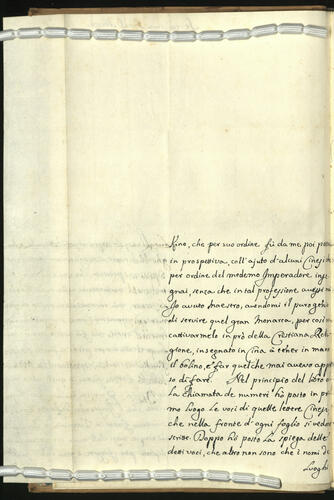 Kino, che per suo ordine fù da me, poi posta
in prospettiva, coll'ajuto d'alcuni Cinesi
per ordine del medemo Imperadore inse
gnai, senza che in tal professione avessi m
Jo avuto maestro, avendomi il puro genio
di servire quel gran Monarca, per così m
cattivarmelo in prò della Cristiana Reli
gione, insegnato in Cina à tener in mano
il bolino, e far quel che mai avevo appre
so di fare. Nel principio del libro o
la Chiamata de numeri hò posto in pri
mo luogo le voci di quelle lettere Cinesi
che nella fronte d'ogni foglio si vedon
scritte. Doppo hò posto la spiega delle
dette voci, che altro non sono che i nomi de
Luoghi